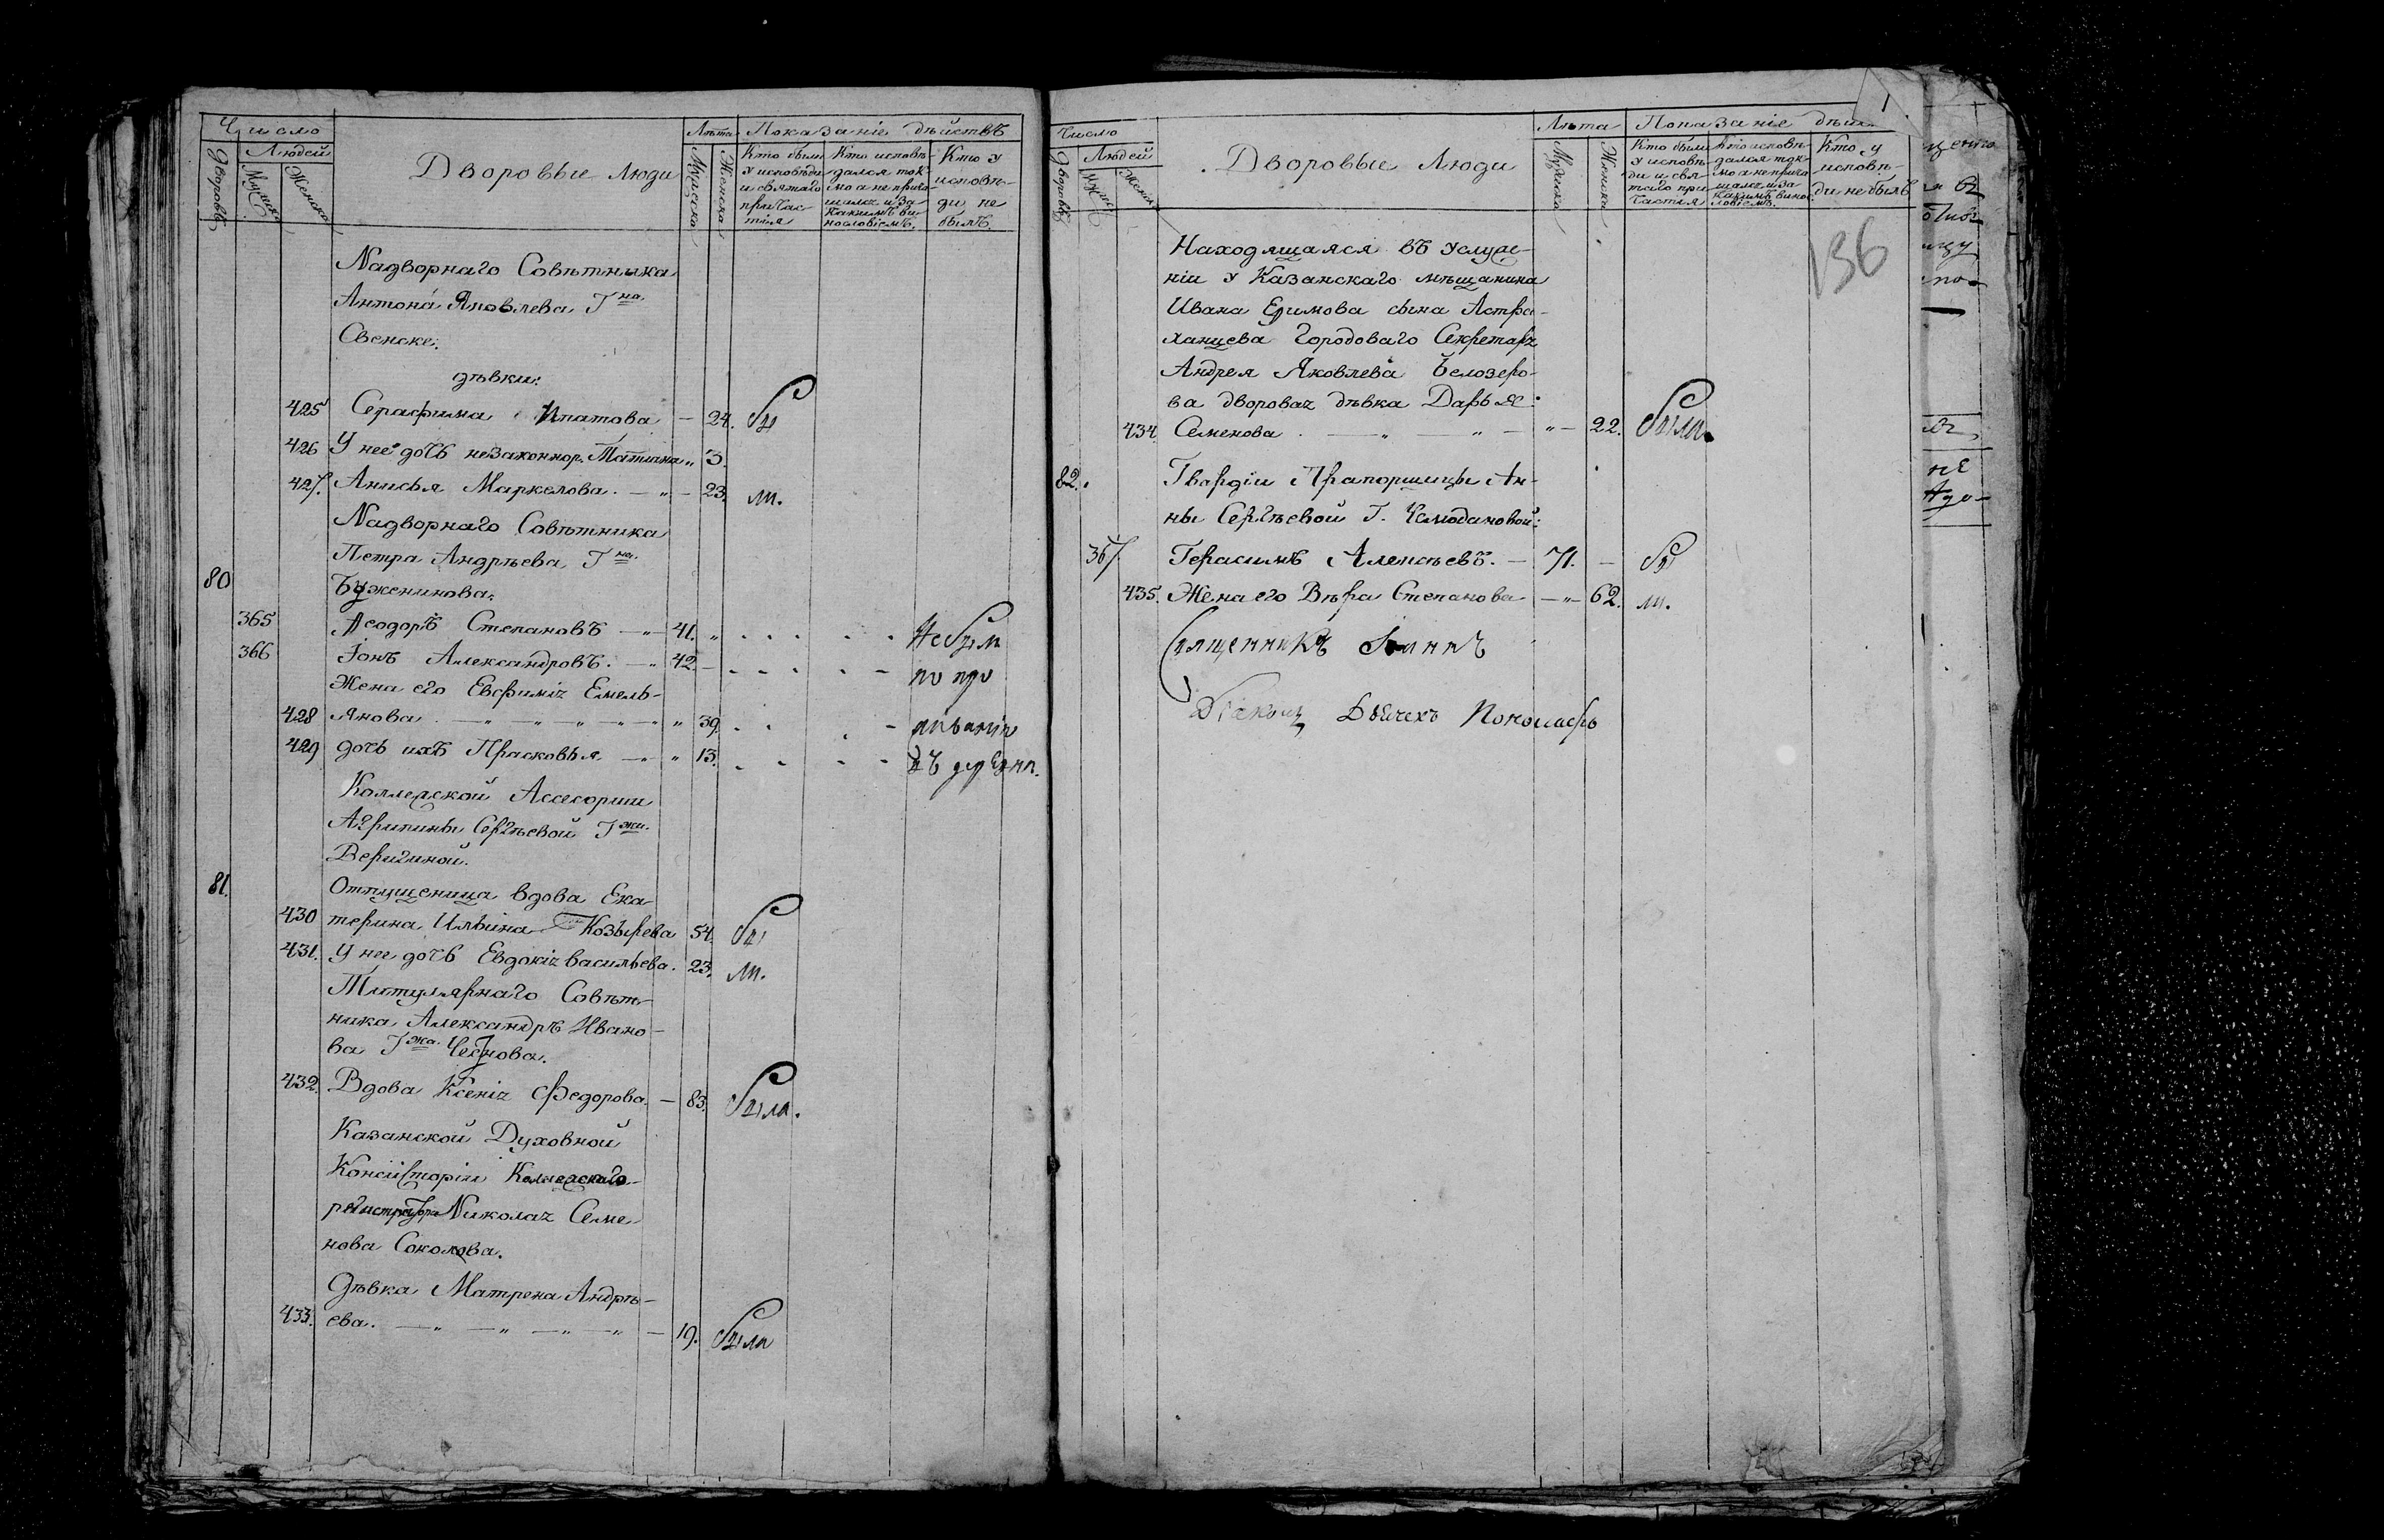 Число
Дворовъ
Людей
Мужеска
Женска
Дворовые Люди
Лѣта
Мужеска
Женска
Показаніе дѣйствъ
Кто были у исповѣди и святаго причастія
Кто исповѣдался токмо а не причащался и за какимъ винословіемъ.
Кто у исповѣди не былъ.
Надворнаго Совѣтника
Антона Яковлева Гна.
Свенске:
дѣвки:
425 Серафима Ипатова — 24. Бы
426 У нее дочь незаконнор. Татіана „ 3.
427. Анисья Маркелова. — „ — 23. ли.
Надворнаго Совѣтника
Петра Андрѣева Гна.
80 Буженинова:
365 Ѳеодоръ Степановъ — „ — 41. „ Не были
366 Іонъ Александровъ. — „ 42. — по про
Жена его Евфимія Емель-
428 янова. — „ — „ — „ — „ — „ 39. живанію
429 дочь ихъ Прасковья — „ „ 13. въ деревни.
Коллежской Ассесорши
Агрипины Сергѣевой Гжи.
Веригиной.
81. Отпущеница вдова Ека-
430 терина Ильина Козырева 54. Бы
431. У нее дочь Евдокія Васильева. 23. ли.
Титулярнаго Совѣт-
ника Александръ Ивано-
ва Гжа.
432. Вдова Ксенія Федорова. — 83. Была.
Казанской Духовной
Консисторіи Коллежскаго
регистратора Николая Семе-
нова Соколова.
Дѣвка Матрена Андрѣ-
433. ева. — „ — „ — „ — „ — 19. Была
Число
Дворовъ
Людей
Мужес
Женск
Дворовые Люди
Лѣта
Мужеска
Женска
Показаніе дѣйс
Кто были у исповѣди и святаго причастія
Кто исповѣдался токмо а не причащался и за какимъ винословіемъ.
Кто у исповѣди не былъ
1
136
Находящаяся въ услуже-
ніи у Казанскаго мѣщанина
Ивана Ефимова сына Астра-
ханцева Городоваго Секретаря
Андрея Яковлева Белозеро-
ва дворовая дѣвка Дарья:
434. Семенова . — „ — „ — „ — 22. Была.
82. Гвардіи Прапорщицы Ан-
ны Сергѣевой Г. Чемодановой:
367. Герасимъ Алексѣевъ. — 71. — Бы
435. Жена его Вѣра Степанова — „ — 62. ли.
Священникъ Іоаннъ
Діаконъ Дьячекъ Пономарь
не